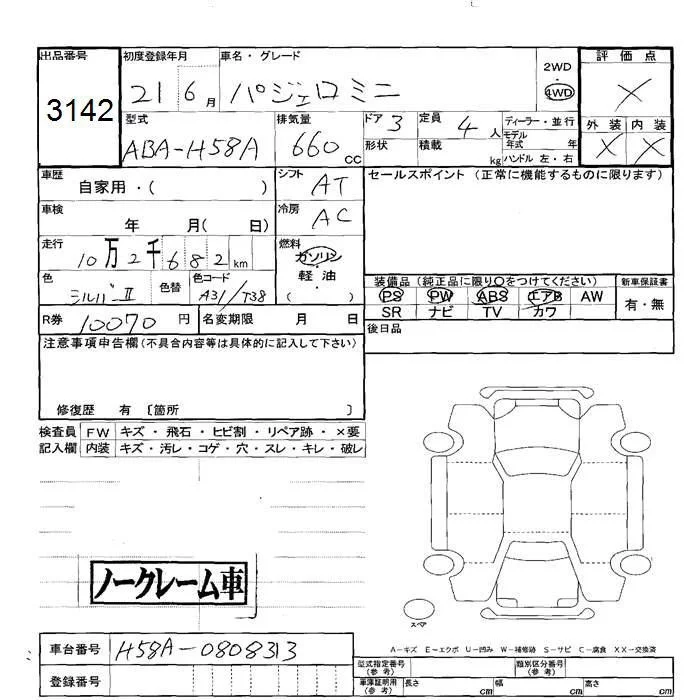 出品番号 初度登録年月 車名・グレード 2WD 評価点
3142 21 6月 パジェロミニ 4WD ×
型式 排気量 ドア 3 定員 4人 ディーラー・並行 外装 内装
ABA-H58A 660cc 形状 積載 kg モデル年式 年 × ×
ハンドル 左・右
車歴 シフト AT セールスポイント (正常に機能するものに限ります)
自家用・( )
車検 冷房 AC
年 月( 日)
走行 10万2千682km 燃料 ガソリン
軽・油
( )
色 シルバーII 色替 色コード A31/T38
装備品 (純正品に限り○をつけてください) 新車保証書
PS PW ABS エアB AW 有・無
SR ナビ TV カワ
R券 10070円 名変期限 月 日
後日品
注意事項申告欄(不具合内容等は具体的に記入して下さい)
修復歴 有 〔箇所 〕
検査員 FW キズ・飛石・ヒビ割・リペア跡・×要
記入欄 内装 キズ・汚レ・コゲ・穴・スレ・キレ・破レ
ノークレーム車
スペア
A-キズ E-エクボ U-凹み W-補修跡 S-サビ C-腐食 XX-交換済
車台番号 H58A-0808313
登録番号
型式指定番号(参考) 類別区分番号(参考)
車庫証明用(参考) 長さ cm 幅 cm 高さ cm